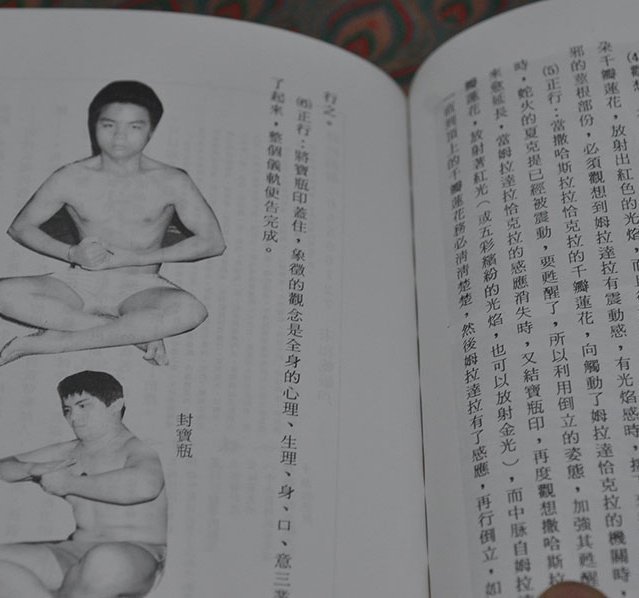 朵千瓣蓮花，放射出紅色的光焰，而
邪的莖根部份，必須觀想到姆拉達拉有震動感，有光焰感時，
(5)正行：當撒哈斯拉拉恰克拉的千瓣蓮花，向觸動了姆拉達恰克拉的機關時，
時，蛇火的夏克提已經被震動，要甦醒了，所以利用倒立的姿態，加強其甦醒
來延長，當姆拉達拉恰克拉的感應消失時，又結寶瓶印，再度觀想撒哈斯拉
瓣蓮花，放射著紅光（或五彩繽紛的光焰，也可以放射金光），而中脉自姆拉達
一直到頂上的千瓣蓮花務必清清楚楚，然後姆拉達拉有了感應，再行倒立，如
行之。
(6)正行：將寶瓶印蓋住，象徵的觀念是全身的心理、生理、身、口、意三業
了起來，整個儀軌便告完成。
封寶瓶